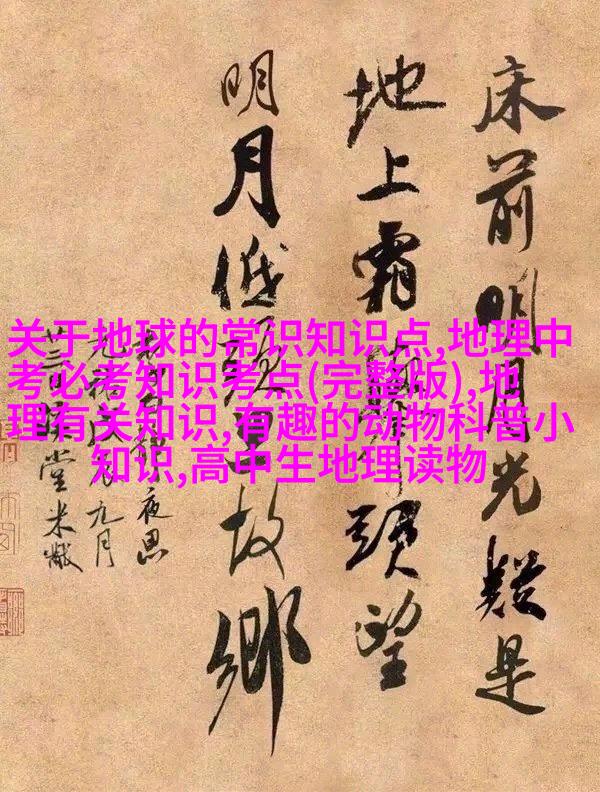 关于地球的常识知识点,地理中
考必考知识考点(完整版),地
理有关知识,有趣的动物科普小
知识,高中生地理读物
床前明月光疑是
地上霜頭望
明月低故鄉
夜思
九月
堂米黻